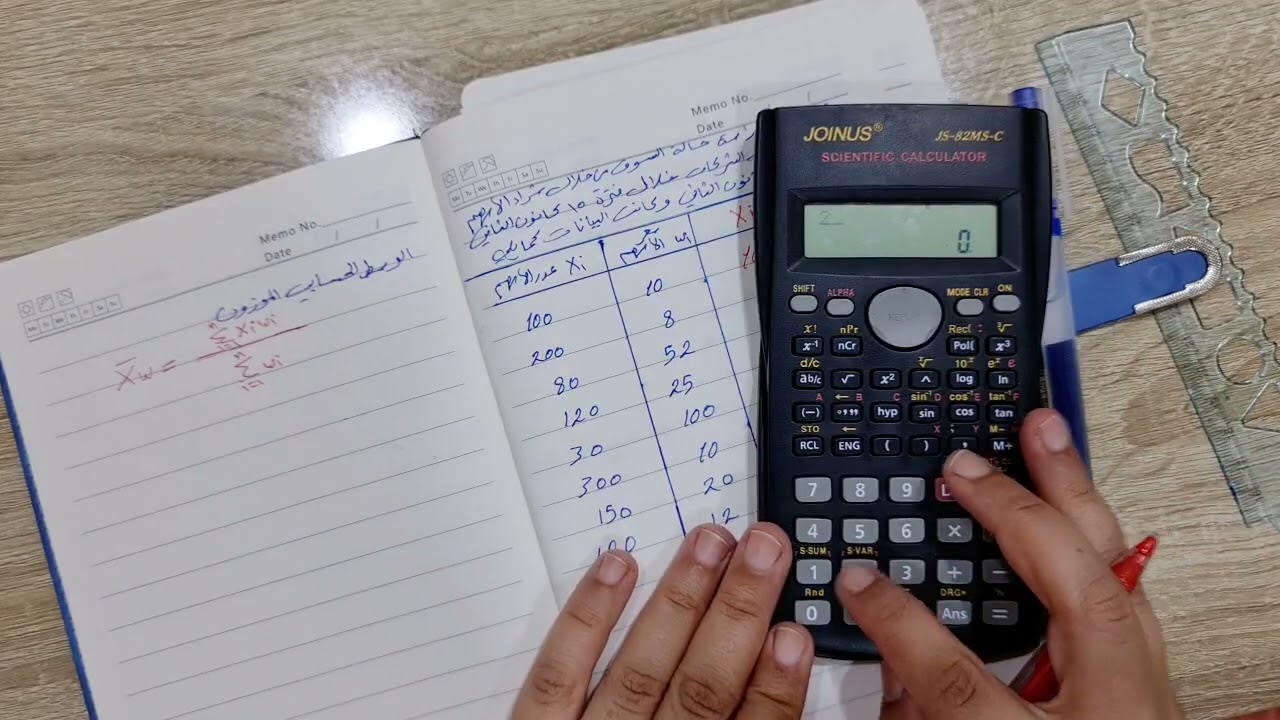 Memo No.
Date / /
Mo Tu We Th Fr Sa Su
الوسط الحسابي الموزون
X̄w = Σ xiwi / Σ wi
i=1
Memo No.
Date
حالة السوق من خلال الأسهم
الشركات خلال فترة ١٥ كانون الثاني
وكانت البيانات كما يلي
عدد الأسهم Xi | سعر الأسهم wi | Xi
100 | 10
200 | 8
80 | 52
120 | 25
30 | 100
300 | 10
150 | 20
100 | 12
JOINUS® JS-82MS-C
SCIENTIFIC CALCULATOR
2_
0.
SHIFT ALPHA MODE CLR ON
x! nPr Rec( : ³√
x⁻¹ nCr Pol( x³
d/c ˣ√ 10ˣ eˣ e
ab/c √ x² ^ log ln
A ← B C sin⁻¹ D cos⁻¹ E tan⁻¹ F
(–) °,,, hyp sin cos tan
STO ← X ; Y M–
RCL ENG ( ) , M+
7 8 9
4 5 6 ×
S-SUM S-VAR
1 3 + −
Rnd DRG▸ %
0 Ans =